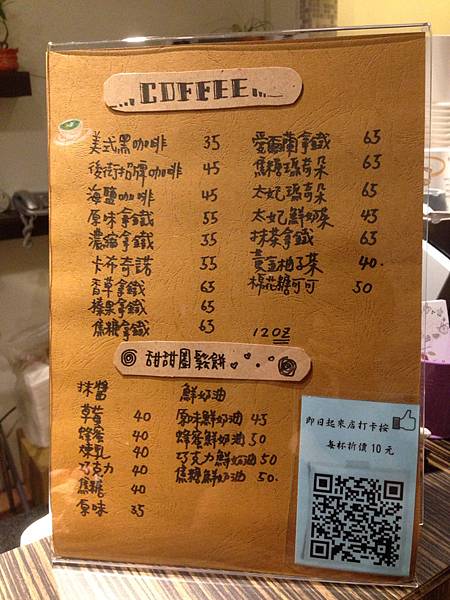 COFFEE
美式黑咖啡 35
後街招牌咖啡 45
海鹽咖啡 45
原味拿鐵 55
濃縮拿鐵 35
卡布奇諾 55
香草拿鐵 65
榛果拿鐵 65
焦糖拿鐵 65
愛爾蘭拿鐵 65
焦糖瑪奇朵 65
太妃瑪奇朵 65
太妃鮮奶茶 45
抹茶拿鐵 65
黃金柚子茶 40.
棉花糖可可 50
12OZ
甜甜圈鬆餅
抹醬
草莓 40
蜂蜜 40
煉乳 40
巧克力 40
焦糖 40
原味 35
鮮奶油
原味鮮奶油 45
蜂蜜鮮奶油 50
巧克力鮮奶油 50
焦糖鮮奶油 50.
即日起來店打卡按
每杯折價10元